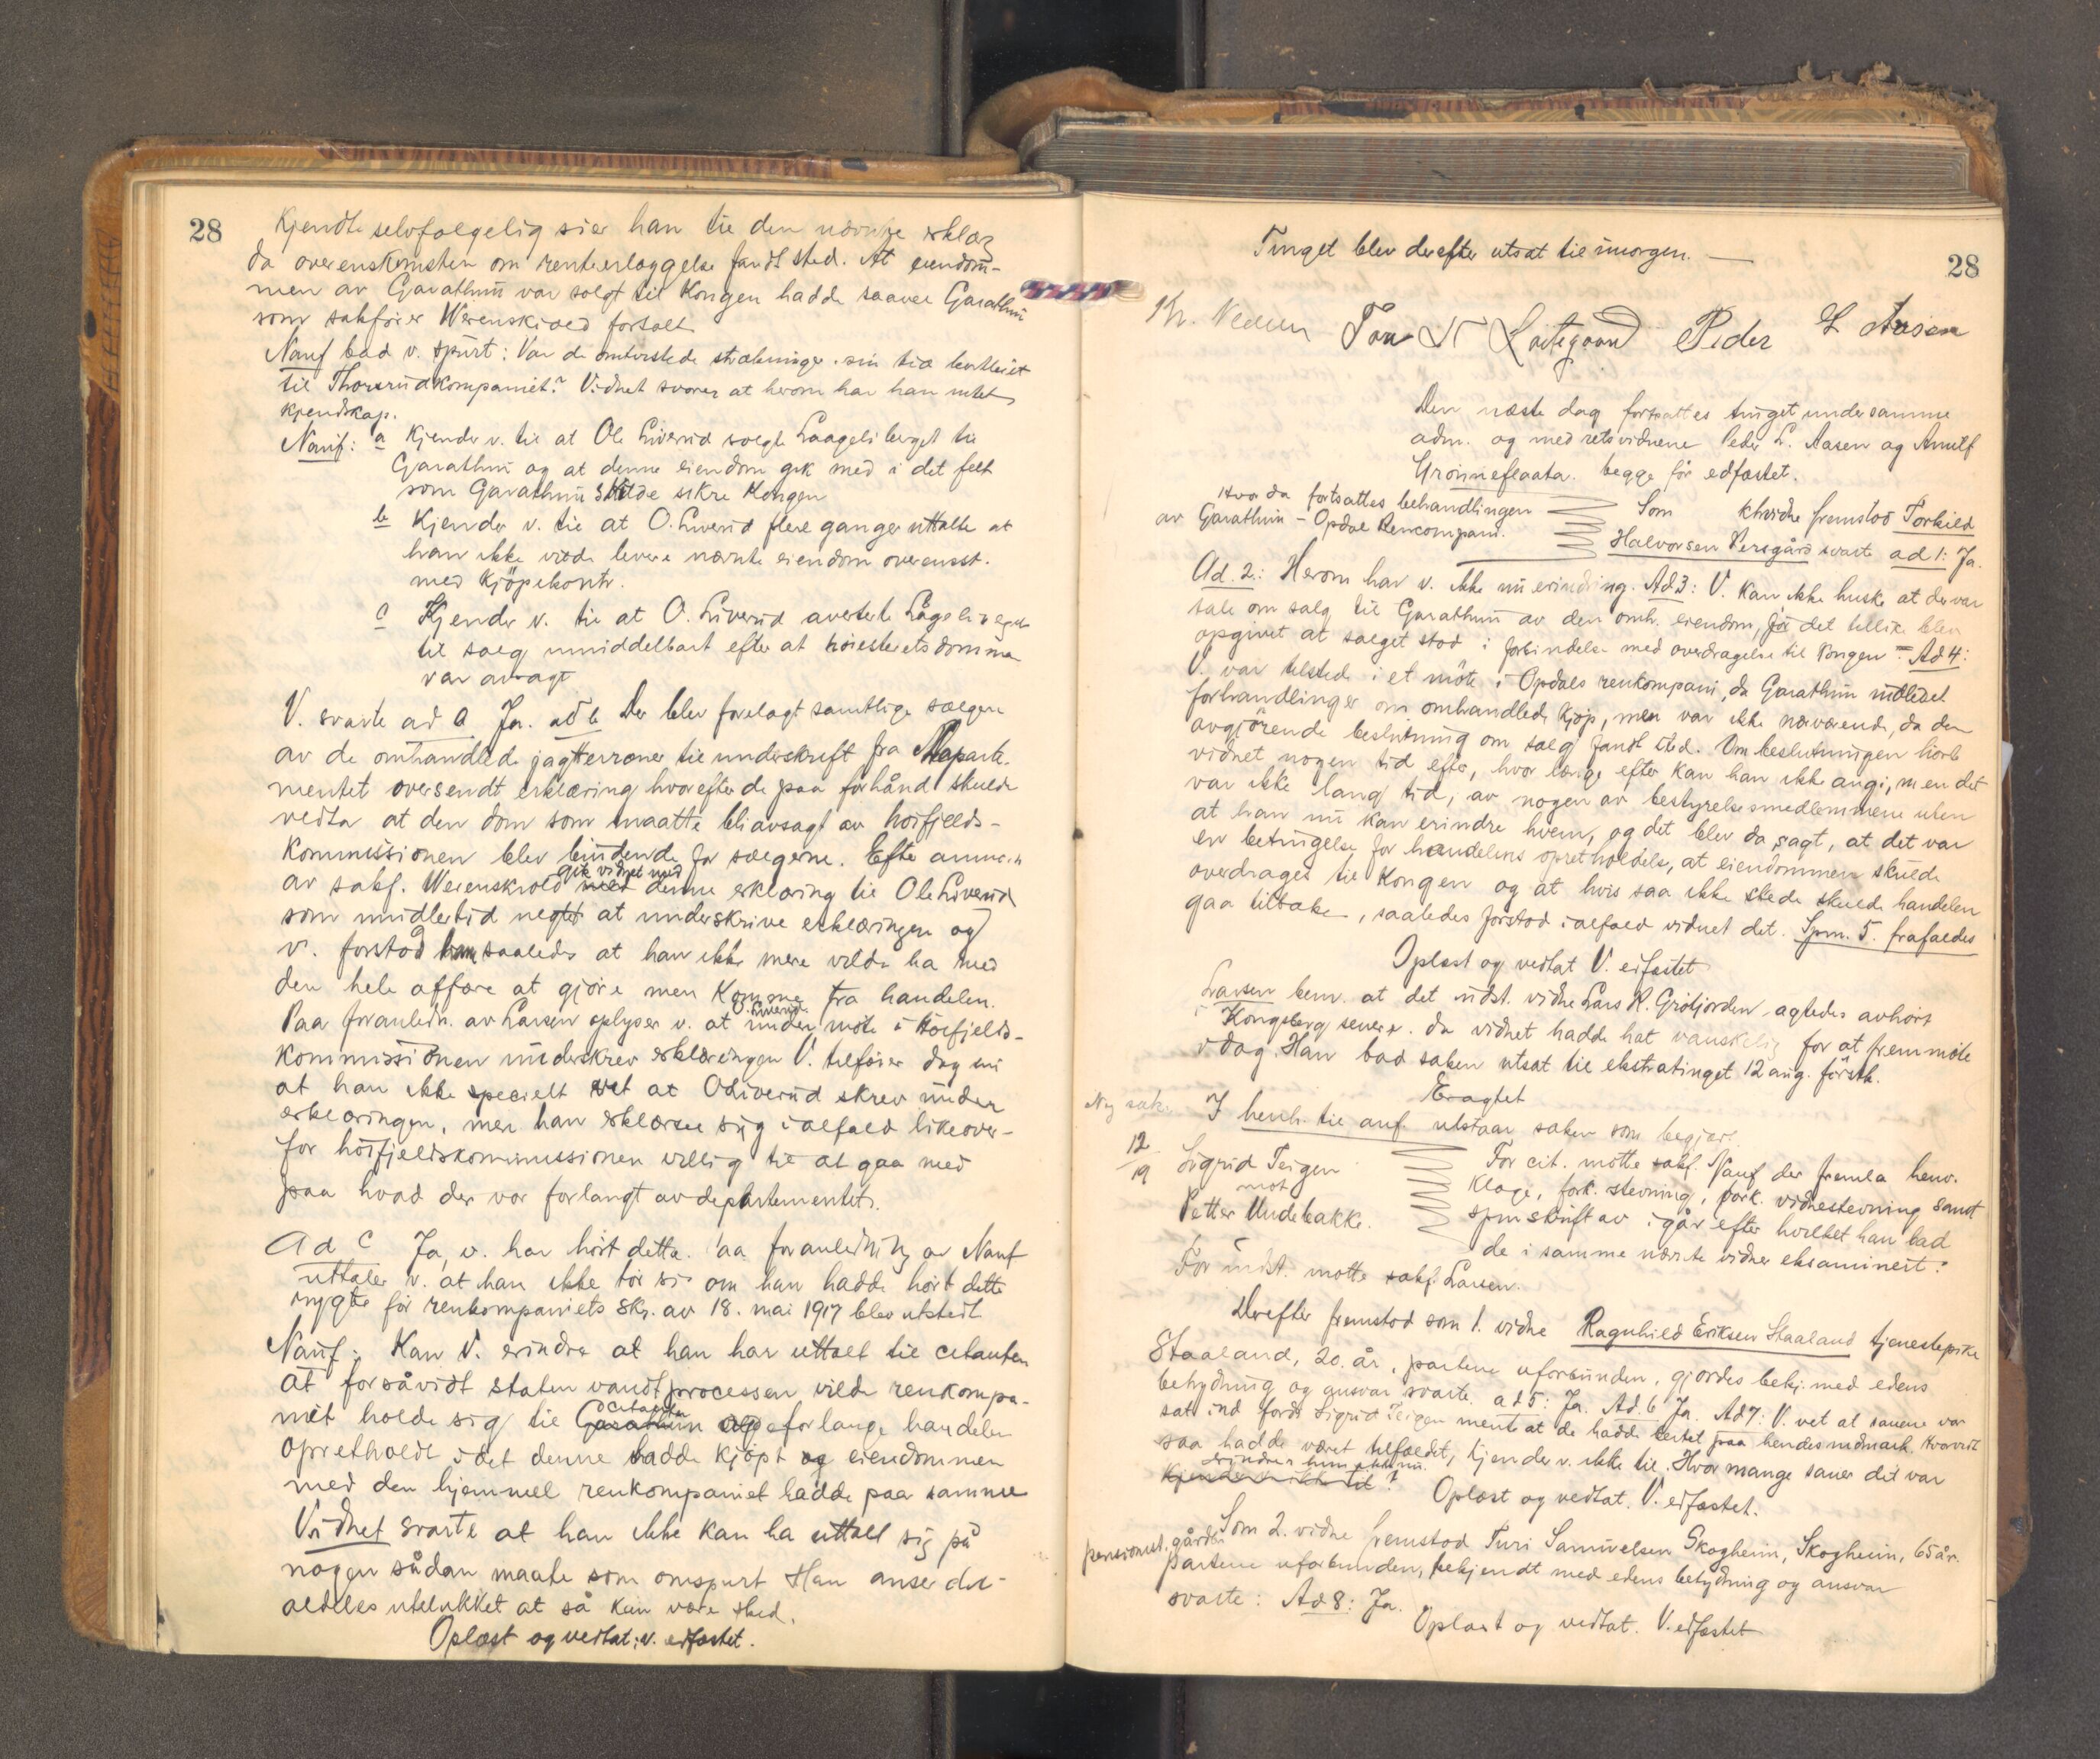 28
Kjendte selvfølgelig sier han til den nævnte erklær
da overenskomsten om renteerlæggelse fandt sted. At eiendom-
men av Garathun var solgt til Kongen hadde saavel Garathun
som sakfører Werenskiold fortalt
Nauf bad v. spurt: Var de omtvistede strækninger i sin tid
til Thorsrudkompaniet? Vidnet svarer at herom har han intet
kjendskap.
Nauf: a Kjender v. til at Ole Liverud solgte Laagelibergel til
Garathun og at denne eiendom gik med i det felt
som Garathun skulde sikre Kongen
b Kjender v. til at O. Liverud flere ganger uttalte at
han ikke vilde levere nævnte eiendom overensst.
med kjöpekontr.
c Kjender v. til at O. Liverud averterte
til salg umiddelbart efter at höiesteretsdommen
var avsagt
V. svarte ad a Ja. ad b Der blev forelagt samtlige sælgere
av de omhandlede jagtterræner til underskrift fra Departe-
mentet oversendt erklæring hvorefter de paa forhånd skulde
vedta at den dom som maatte bli avsagt av høifjelds-
kommissionen blev bindende for sælgerne. Efter anmodn
gik vidnet med
av sakf. Werenskiold med denne erklæring til Ole Liverud
som imidlertid negtet at underskrive erklæringen og
v. forstod ham saaledes at han ikke mere vilde ha med
den hele affære at gjöre men komme fra handelen.
O. Liverud
Paa foranledn. av Larsen oplyser v. at under möte i Höifjelds-
kommissionen underskrev erklæringen V. tilföier dog nu
at han ikke specielt vet at O Liverud skrev under
erklæringen, men han erklærte sig i alfald likeover-
for höifjeldskommissionen villig til at gaa med
paa hvad der var forlangt av departementet.
Ad c Ja, v. har hört dette. Paa foranledning av Nauf
uttaler v. at han ikke tör si om han hadde hört dette
rygte för renkompaniets skr. av 18. mai 1917 blev utstedt
Nauf: Kan V. erindre at han har uttalt til citanten
at forsåvidt staten vandt processen vilde renkompa-
citanten
niet holde sig til Garathun og forlange handelen
opretholdt idet denne hadde kjöpt og eiendommen
med den hjemmel renkompaniet hadde paa samme
Vidnet svarte at han ikke kan ha uttalt sig på
nogen sådan maate som omspurt Han anser det
aldeles utelukket at så kan være sked.
Oplæst og vedtat; v. edfæstet.
28
Tinget blev derefter utsat til imorgen. —
Peder L Aasen
Den næste dag fortsattes tinget under samme
adm. og med retsvidnene Peder L. Aasen og Arnulf
Grönneflaata. begge för edfæstet.
Hvorda fortsattes behandlingen
av Garathun - Opdal Rencompani.
Som vidne fremstod Torkild
Halvorsen Persgård svarte ad 1: Ja.
Ad. 2: Herom har v. ikke nu erindring. Ad 3: V. kan ikke huske at der var
tale om salg til Garathun av den omh. eiendom, för det tillike blev
opgivet at salget stod i forbindelse med overdragelse til Kongen. Ad 4:
V. var tilstede i et möte i Opdals renkompani, da Garathun indledet
forhandlinger om omhandlede kjöp, men var ikke nærværende, da den
avgjörende beslutning om salg fandt sted. Om beslutningen hörte
vidnet nogen tid efter, hvor længe efter kan han ikke angi, men det
var ikke lang tid, av nogen av bestyrelsesmedlemmene uten
at han nu kan erindre hvem, og det blev da sagt, at det var
en betingelse for handelens opretholdelse, at eiendommen skulde
overdrages til Kongen og at hvis saa ikke skede skulde handelen
gaa tilbake, saaledes forstod i alfald vidnet det. Spm. 5. frafaldes
Oplæst og vedtat V. edfæstet
Larsen bem. at det indst. vidne Lars H. Gröljorden agtedes avhört
i Kongsberg senere. da vidnet hadde hat vanskelig for at fremmöte
idag. Han bad saken utsat til ekstratinget 12 aug. förstk.
Eragtet
Ny sak. I henh. til anf. utstaar saken som begjært.
12/19 Sigrid Teigen
mot
Petter Undebakke.
For cit. mötte sakf. Nauf der fremla henv.
klage, fork. stevning, fork. vidnestevning samt
spmskrift av igår efter hvilket han bad
de i samme nævnte vidner eksaminert:
For indst. mötte sakf. Larsen.
Derefter fremstod som 1. vidne Ragnhild Eriksen Staaland tjenestepike
Staaland, 20. år, partene uforbunden, gjordes bekj. med edens
betydning og ansvar svarte. ad 5: Ja. Ad. 6 Ja. Ad 7: V. vet at sauene var
sat ind fordi Sigrid Teigen mente at de hadde beitet paa hendes indmark. Hvorvidt
saa hadde været tilfældet, kjender v. ikke til. Hvor mange sauer det var
erindrer hun ikke nu.
kjender v. ikke til?
Oplæst og vedtat. V. edfæstet.
Som 2. vidne fremstod Turi Samuelsen Skogheim, Skogheim, 65 år.
pensionist. gårdbr
partene uforbunden, bekjendt med edens betydning og ansvar
svarte: Ad 8: Ja.
Oplæst og vedtat. V. edfæstet